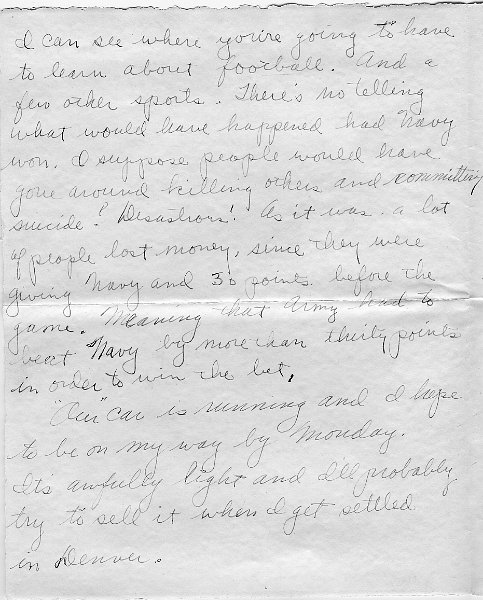 I can see where you're going to have
to learn about football. And a
few other sports. There's no telling
what would have happened had Navy
won. I suppose people would have
gone around killing others and committing
suicide? Disastrous! As it was a lot
of people lost money, since they were
giving Navy and 30 points before the
game. Meaning that Army had to
beat Navy by more than thirty points
in order to win the bet.
"Our" car is running and I hope
to be on my way by Monday.
It's awfully light and I'll probably
try to sell it when I get settled
in Denver.